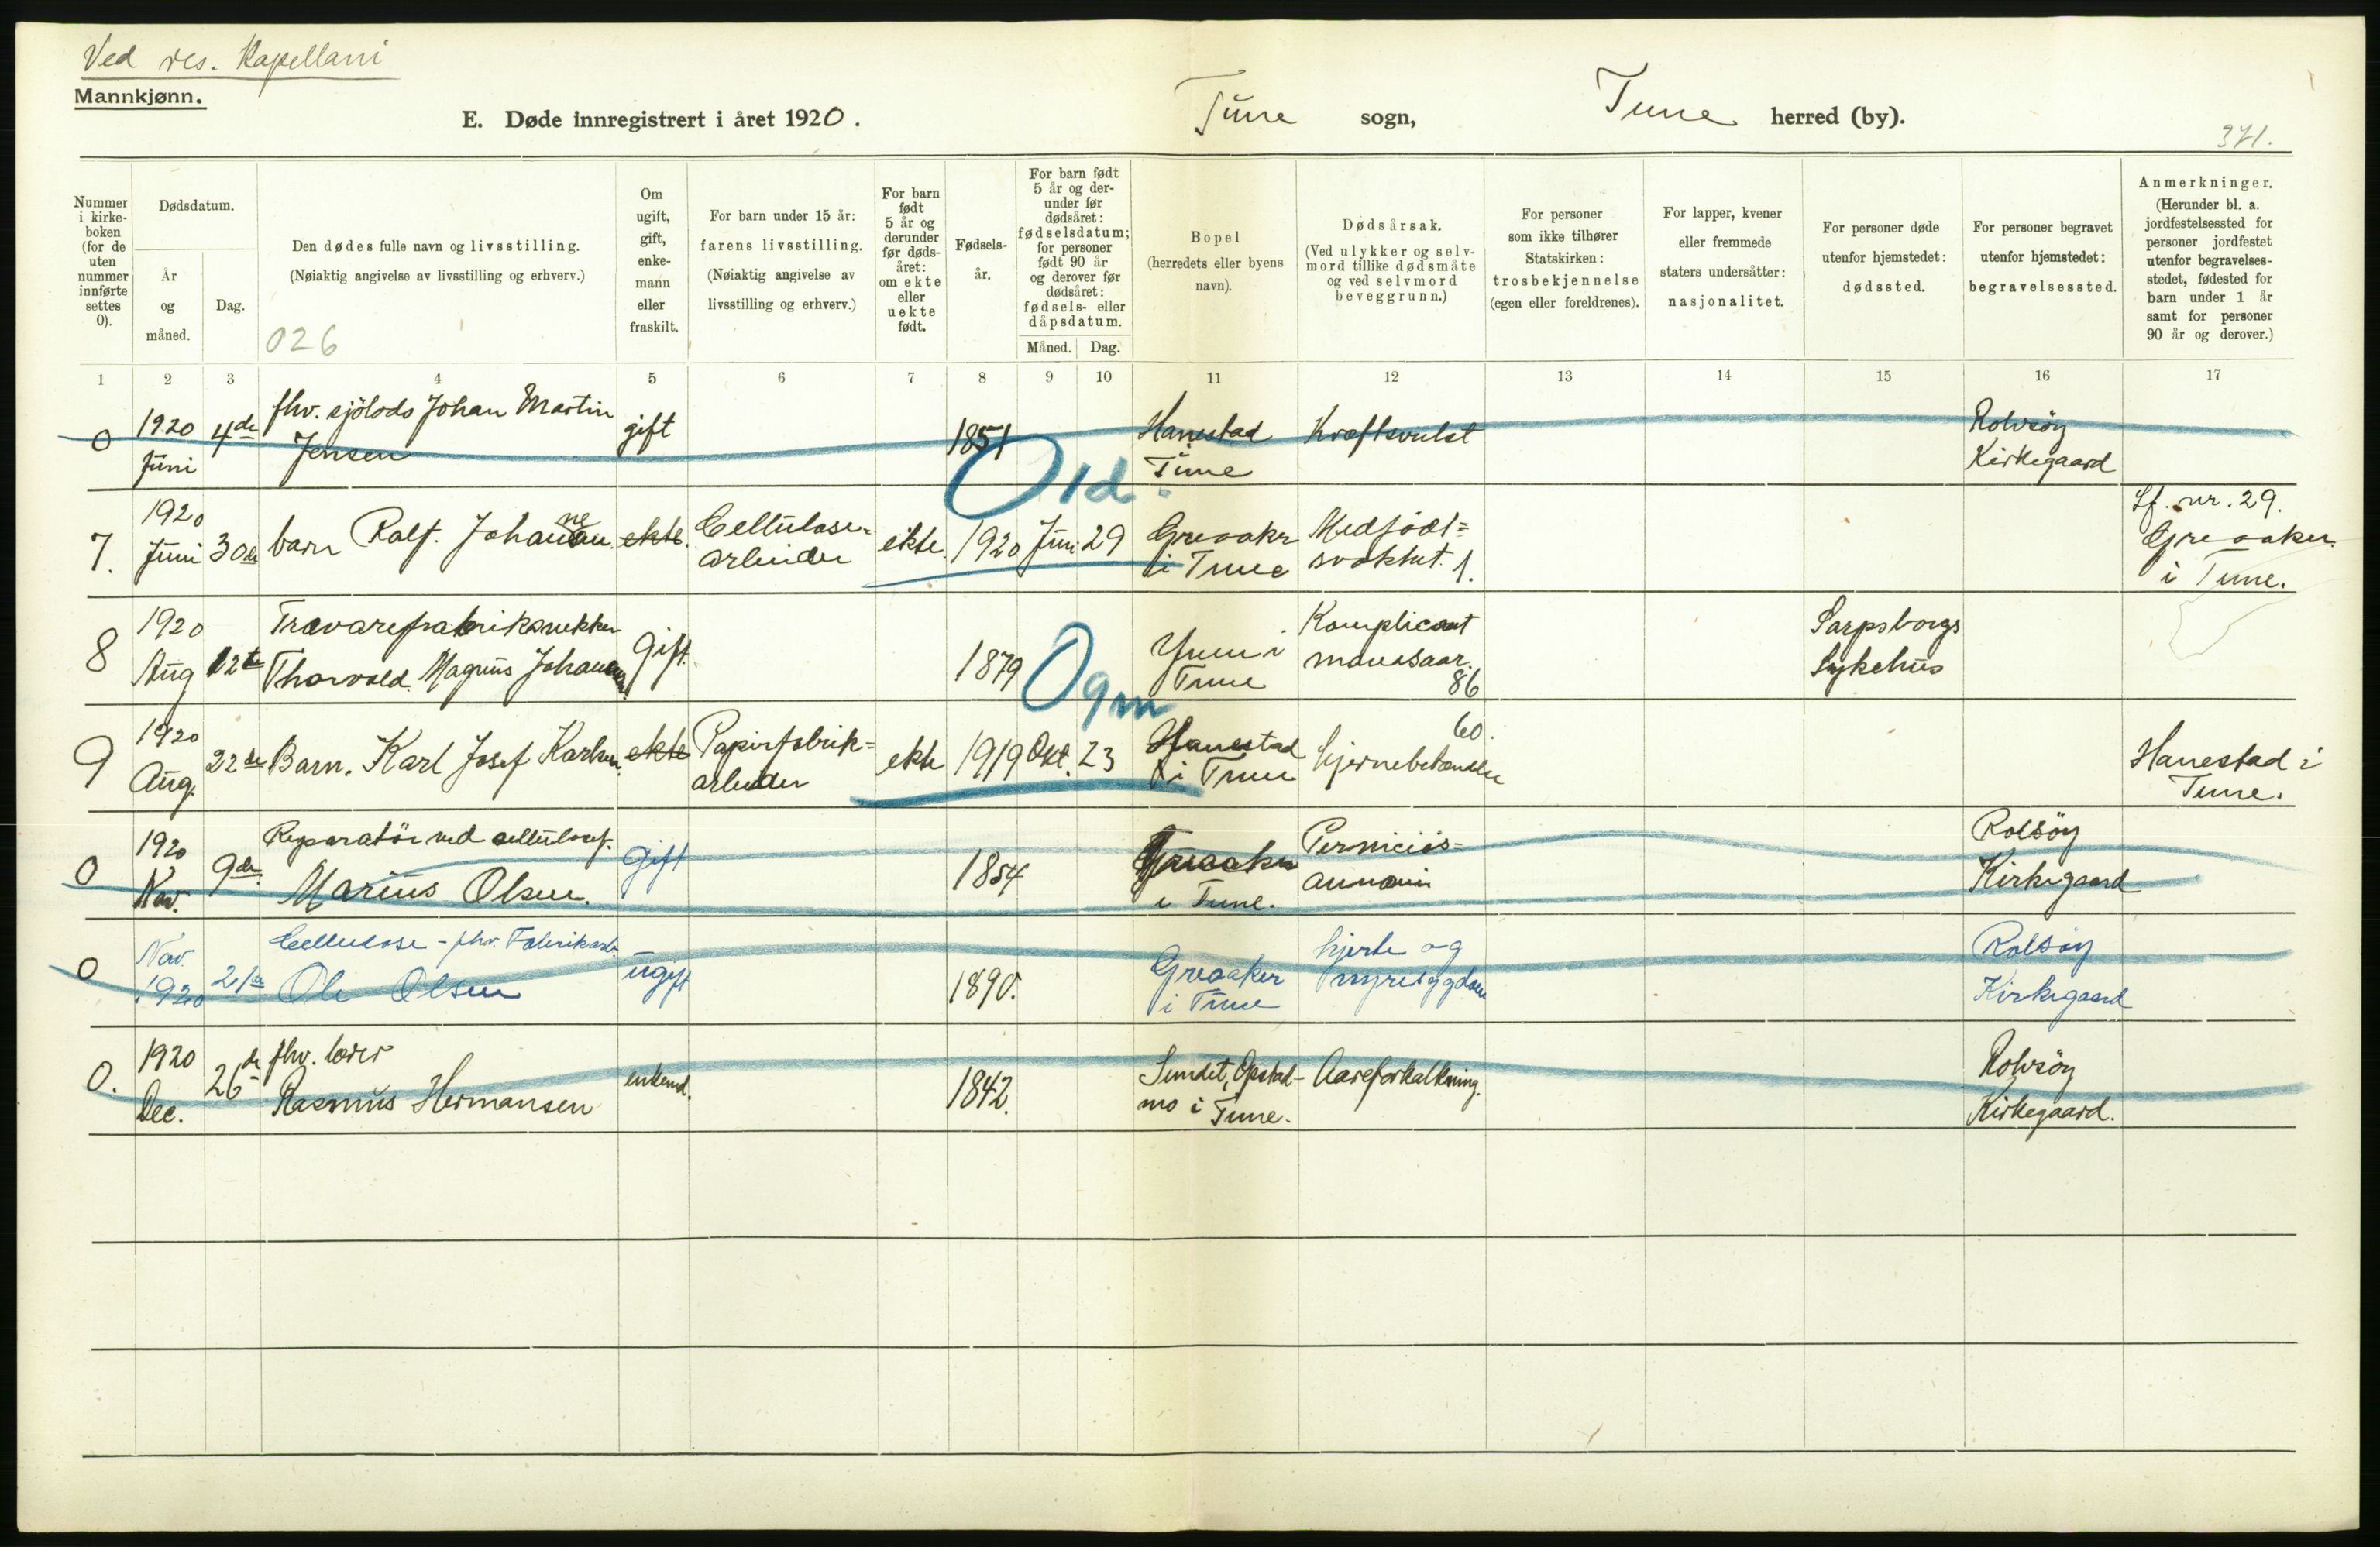 Ved res. Kapellani
Mannkjønn.
E. Døde innregistrert i året 1920.
Tune sogn,
Tune herred (by).
371.
Nummer
i kirke-
boken
(for de
uten
nummer
innførte
settes
0).
Dødsdatum.
År
og
måned.
Dag.
Den dødes fulle navn og livsstilling.
(Nøiaktig angivelse av livsstilling og erhverv.)
026
Om
ugift,
gift,
enke-
mann
eller
fraskilt.
For barn under 15 år:
farens livsstilling.
(Nøiaktig angivelse av
livsstilling og erhverv.)
For barn
født
5 år og
derunder
før døds-
året:
om ekte
eller
uekte
født.
Fødsels-
år.
For barn født
5 år og der-
under før
dødsåret:
fødselsdatum;
for personer
født 90 år
og derover før
dødsåret:
fødsels- eller
dåpsdatum.
Måned. Dag.
Bopel
(herredets eller byens
navn).
Dødsårsak.
(Ved ulykker og selv-
mord tillike dødsmåte
og ved selvmord
beveggrunn.)
For personer
som ikke tilhører
Statskirken:
trosbekjennelse
(egen eller foreldrenes).
For lapper, kvener
eller fremmede
staters undersåtter:
nasjonalitet.
For personer døde
utenfor hjemstedet:
dødssted.
For personer begravet
utenfor hjemstedet:
begravelsessted.
Anmerkninger.
(Herunder bl. a.
jordfestelsessted for
personer jordfestet
utenfor begravelses-
stedet, fødested for
barn under 1 år
samt for personer
90 år og derover.)
1 2 3 4 5 6 7 8 9 10 11 12 13 14 15 16 17
0
1920
Juni
4de
fhv. sjölods Johan Martin
Jensen
gift
1851
Hanestad
Tune
Kræftsvulst
Rolvsöy
Kirkegaard
Old.
7.
1920
Juni
30de
barn Ralf. Johannesen
ekte.
Cellulose=
arbeider
ekte.
1920 Juni 29
Greaaker
i Tune
Medfödt=
svakhet. 1.
Lf. nr. 29.
Greaaker.
i Tune.
8
1920
Aug
12te
Trævarefabriksnekker
Thorvald Magnus Johansen
Gift.
1879
Ogm
i
Tune
Komplicert
mavesaar.
86
Sarpsborgs
Sykehus
9
1920
Aug.
22de
Barn. Karl Josef Karlsen.
ekte
Papirfabrik=
arbeider
ekte
1919 Okt. 23
Hanestad
i Tune
60.
hjernebetændelse
Hanestad i
Tune.
0
1920
Nov.
9de.
Reparatör ved cellulosef.
Marius Olsen.
gift
1854
Greaaker
i Tune.
Perniciös=
anæmi
Rolsöy
Kirkegaard
0
Nov.
1920
21de
Cellulose - fhv. Fabrikarb.
Ole Olsen
ugift
1890.
Greaaker
i Tune
hjerte og
nyresygdom
Rolsöy
Kirkegaard
0.
1920
Dec.
26de
fhv. lærer
Rasmus Hermansen
enkemd.
1842.
Sundet, Opstad-
mo i Tune.
Aareforkalkning.
Rolvsöy
Kirkegaard.